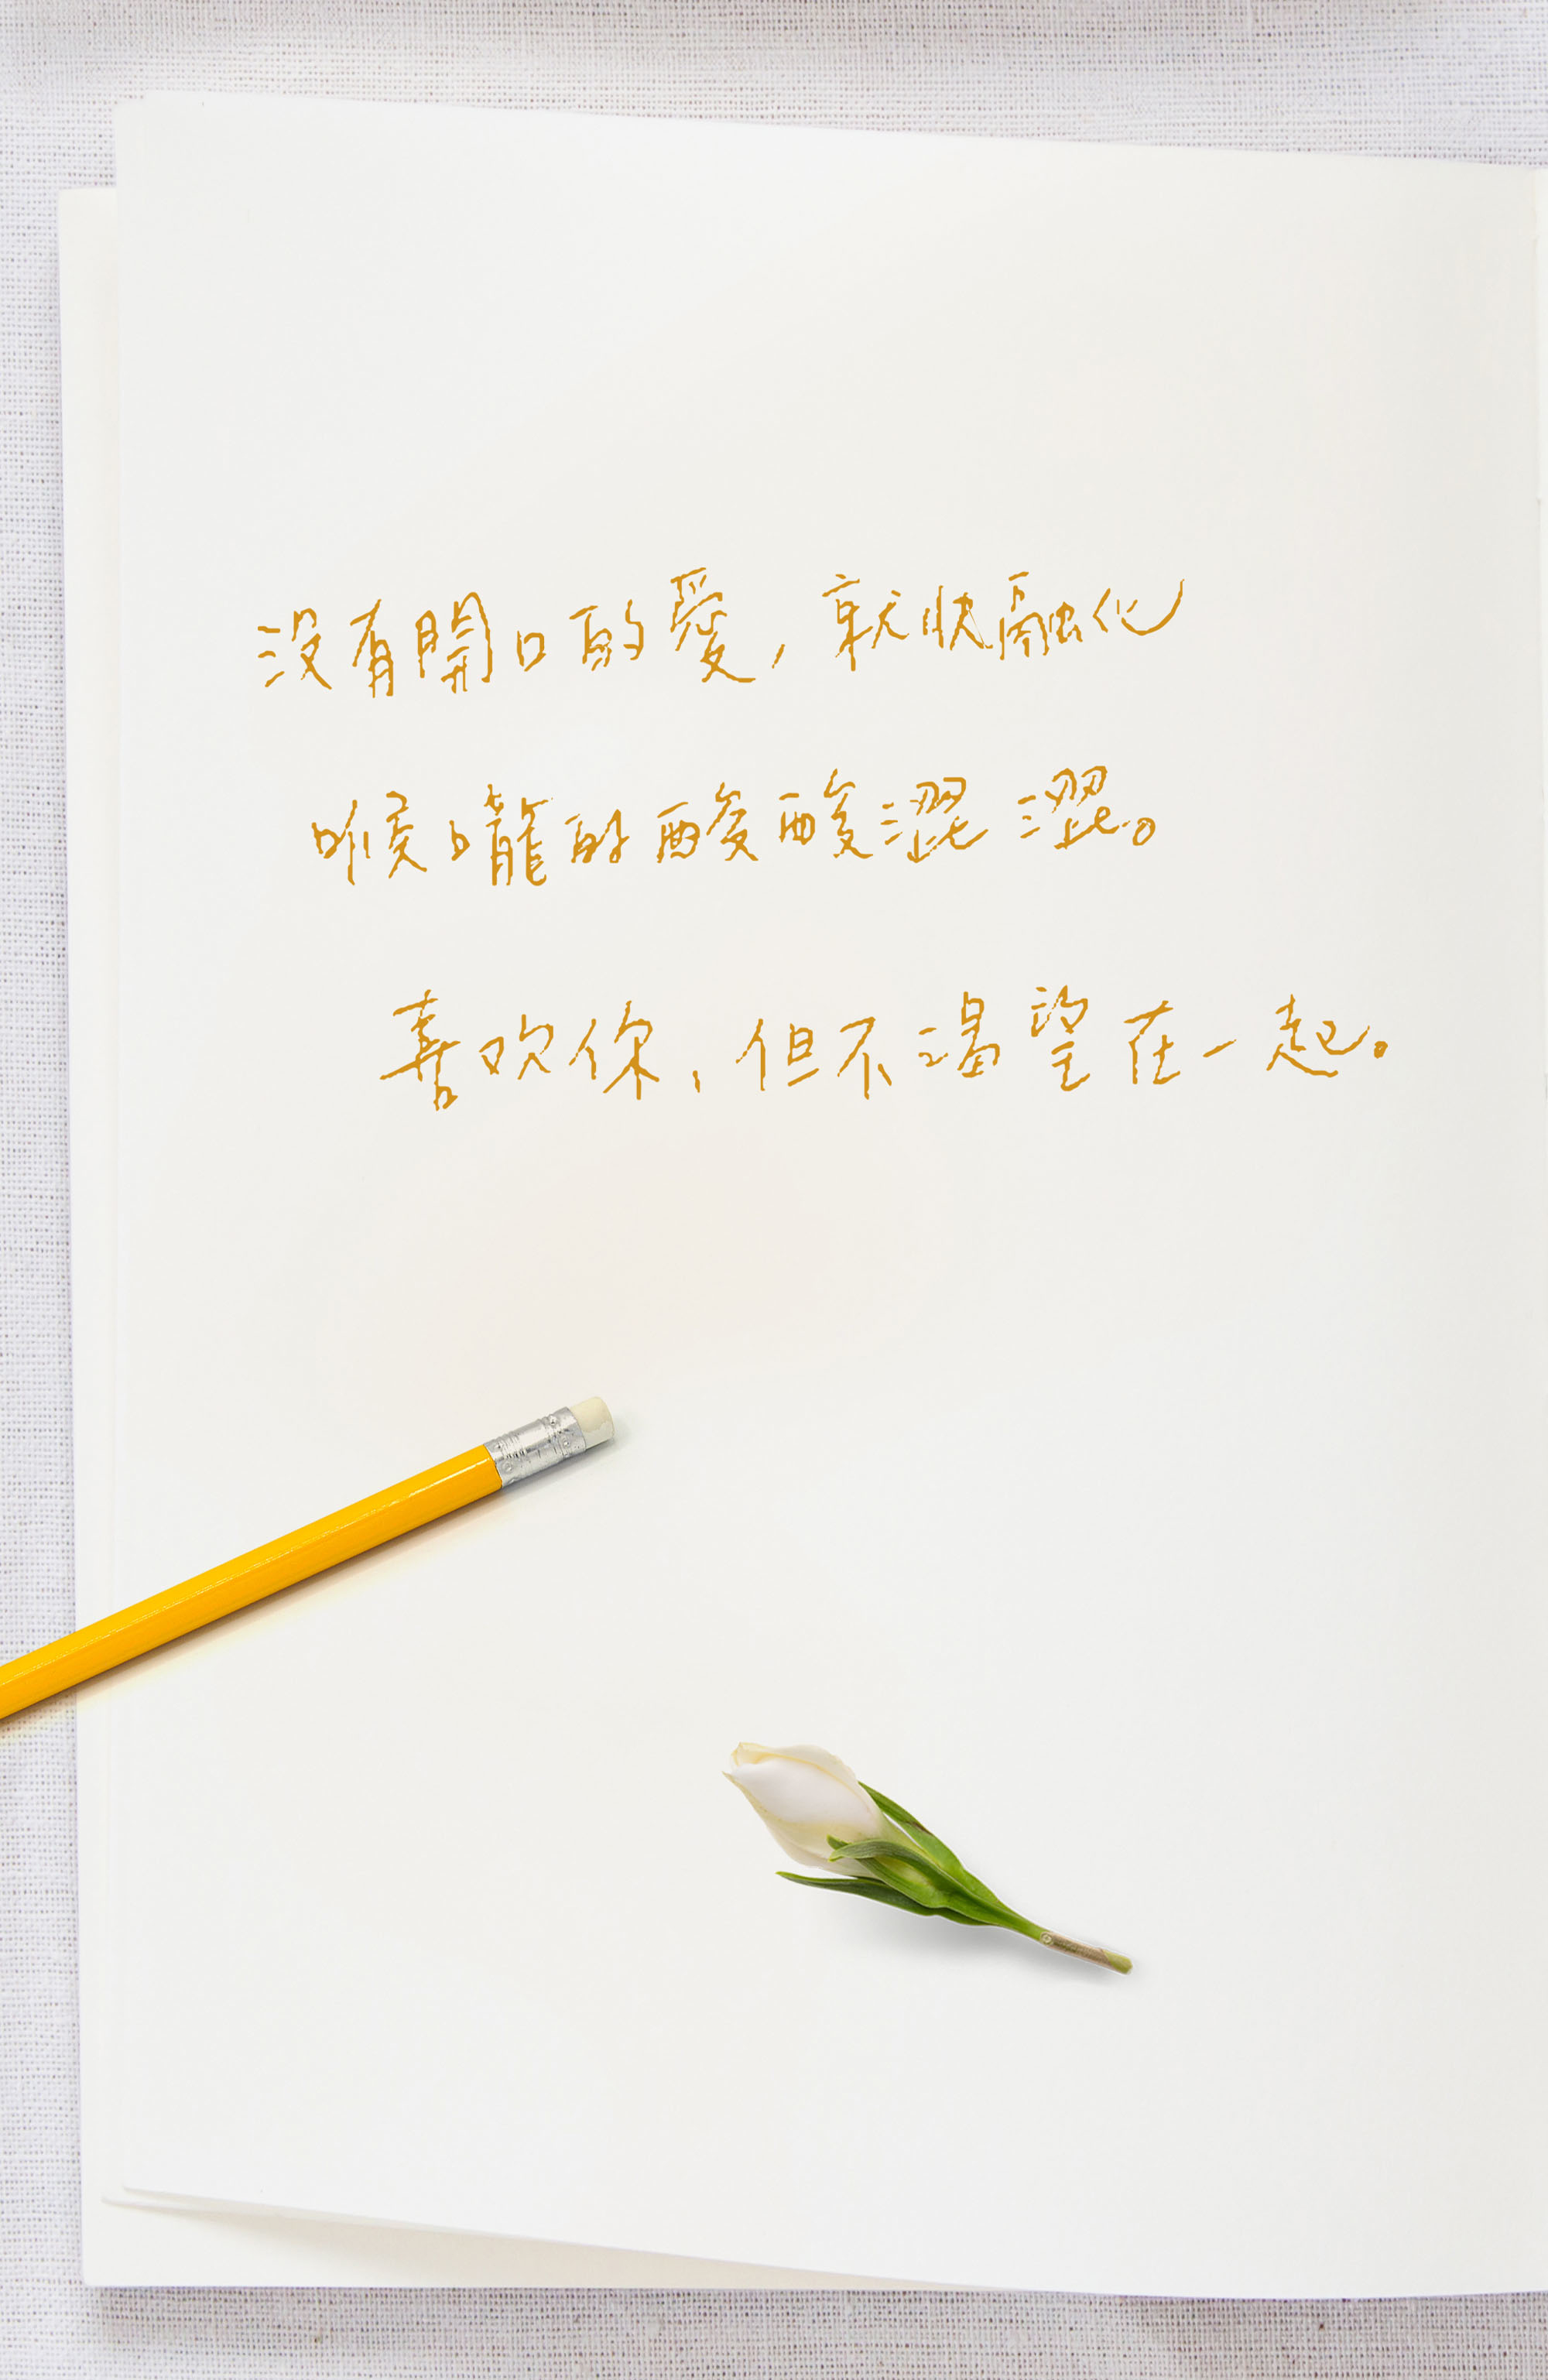 沒有開口的愛，就快融化
喉嚨的酸酸澀澀。
喜欢你、但不渴望在一起。